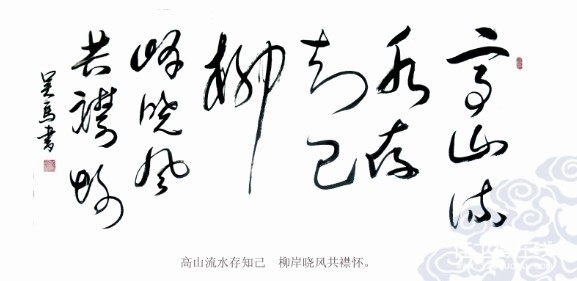 高山流
水存
知己
柳
岸晓风
共襟怀
吴馬书
高山流水存知己　柳岸晓风共襟怀。